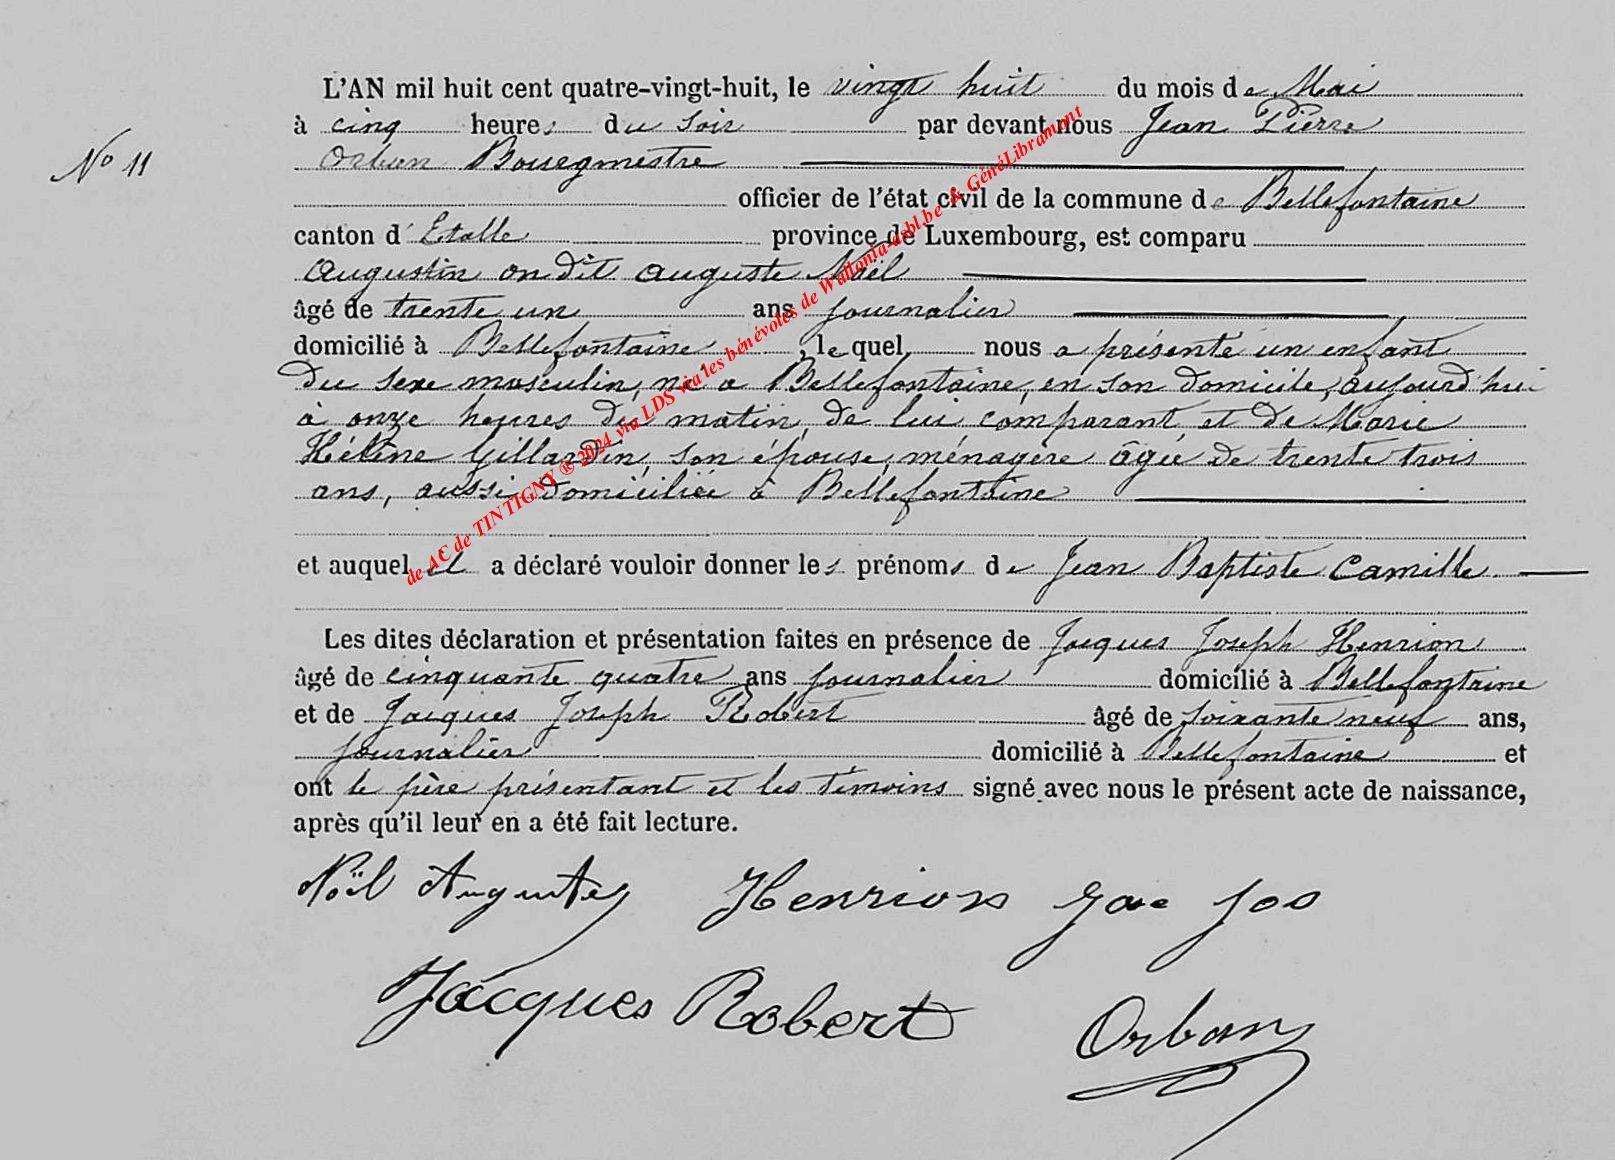 L'AN mil huit cent quatre-vingt-huit, le vingt huit du mois de Mai
à cinq heures du soir par devant nous Jean Pierre
No 11
Orban Bourgmestre
officier de l'état civil de la commune de Bellefontaine
canton d'Etalle province de Luxembourg, est comparu
Augustin on dit Auguste Noël
âgé de trente un ans journalier
domicilié à Bellefontaine, lequel nous a présenté un enfant
du sexe masculin, né à Bellefontaine, en son domicile, aujourd'hui
à onze heures du matin, de lui comparant et de Marie
Hélène Gillardin, son épouse, ménagère âgée de trente trois
ans, aussi domiciliée à Bellefontaine
et auquel il a déclaré vouloir donner les prénoms de Jean Baptiste Camille
Les dites déclaration et présentation faites en présence de Jacques Joseph Henrion
âgé de cinquante quatre ans journalier domicilié à Bellefontaine
et de Jacques Joseph Robert âgé de soixante neuf ans,
journalier domicilié à Bellefontaine et
ont le père présentant et les témoins signé avec nous le présent acte de naissance,
après qu'il leur en a été fait lecture.
Noël Auguste Henrion Jac Jos
Jacques Robert Orban
de AC de TINTIGNY ® 2024 via LDS via les bénévoles de Wallonia-asbl.be & GénéLibramont